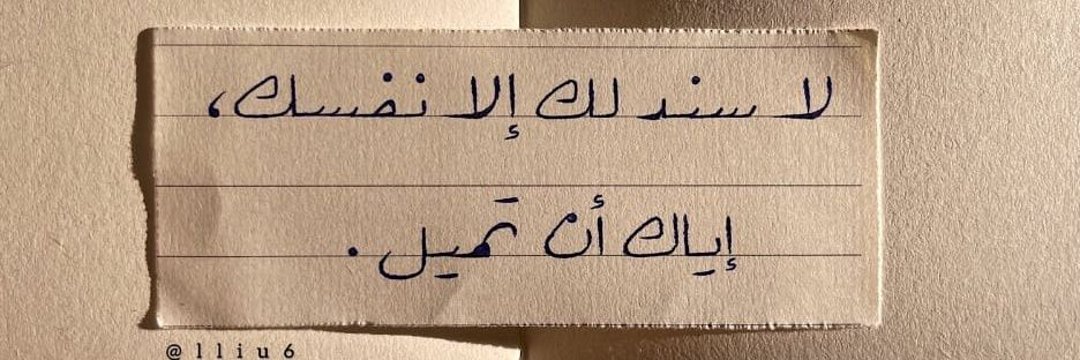 لا سند لك إلا نفسك،
إياك أن تميل.
@lliu6